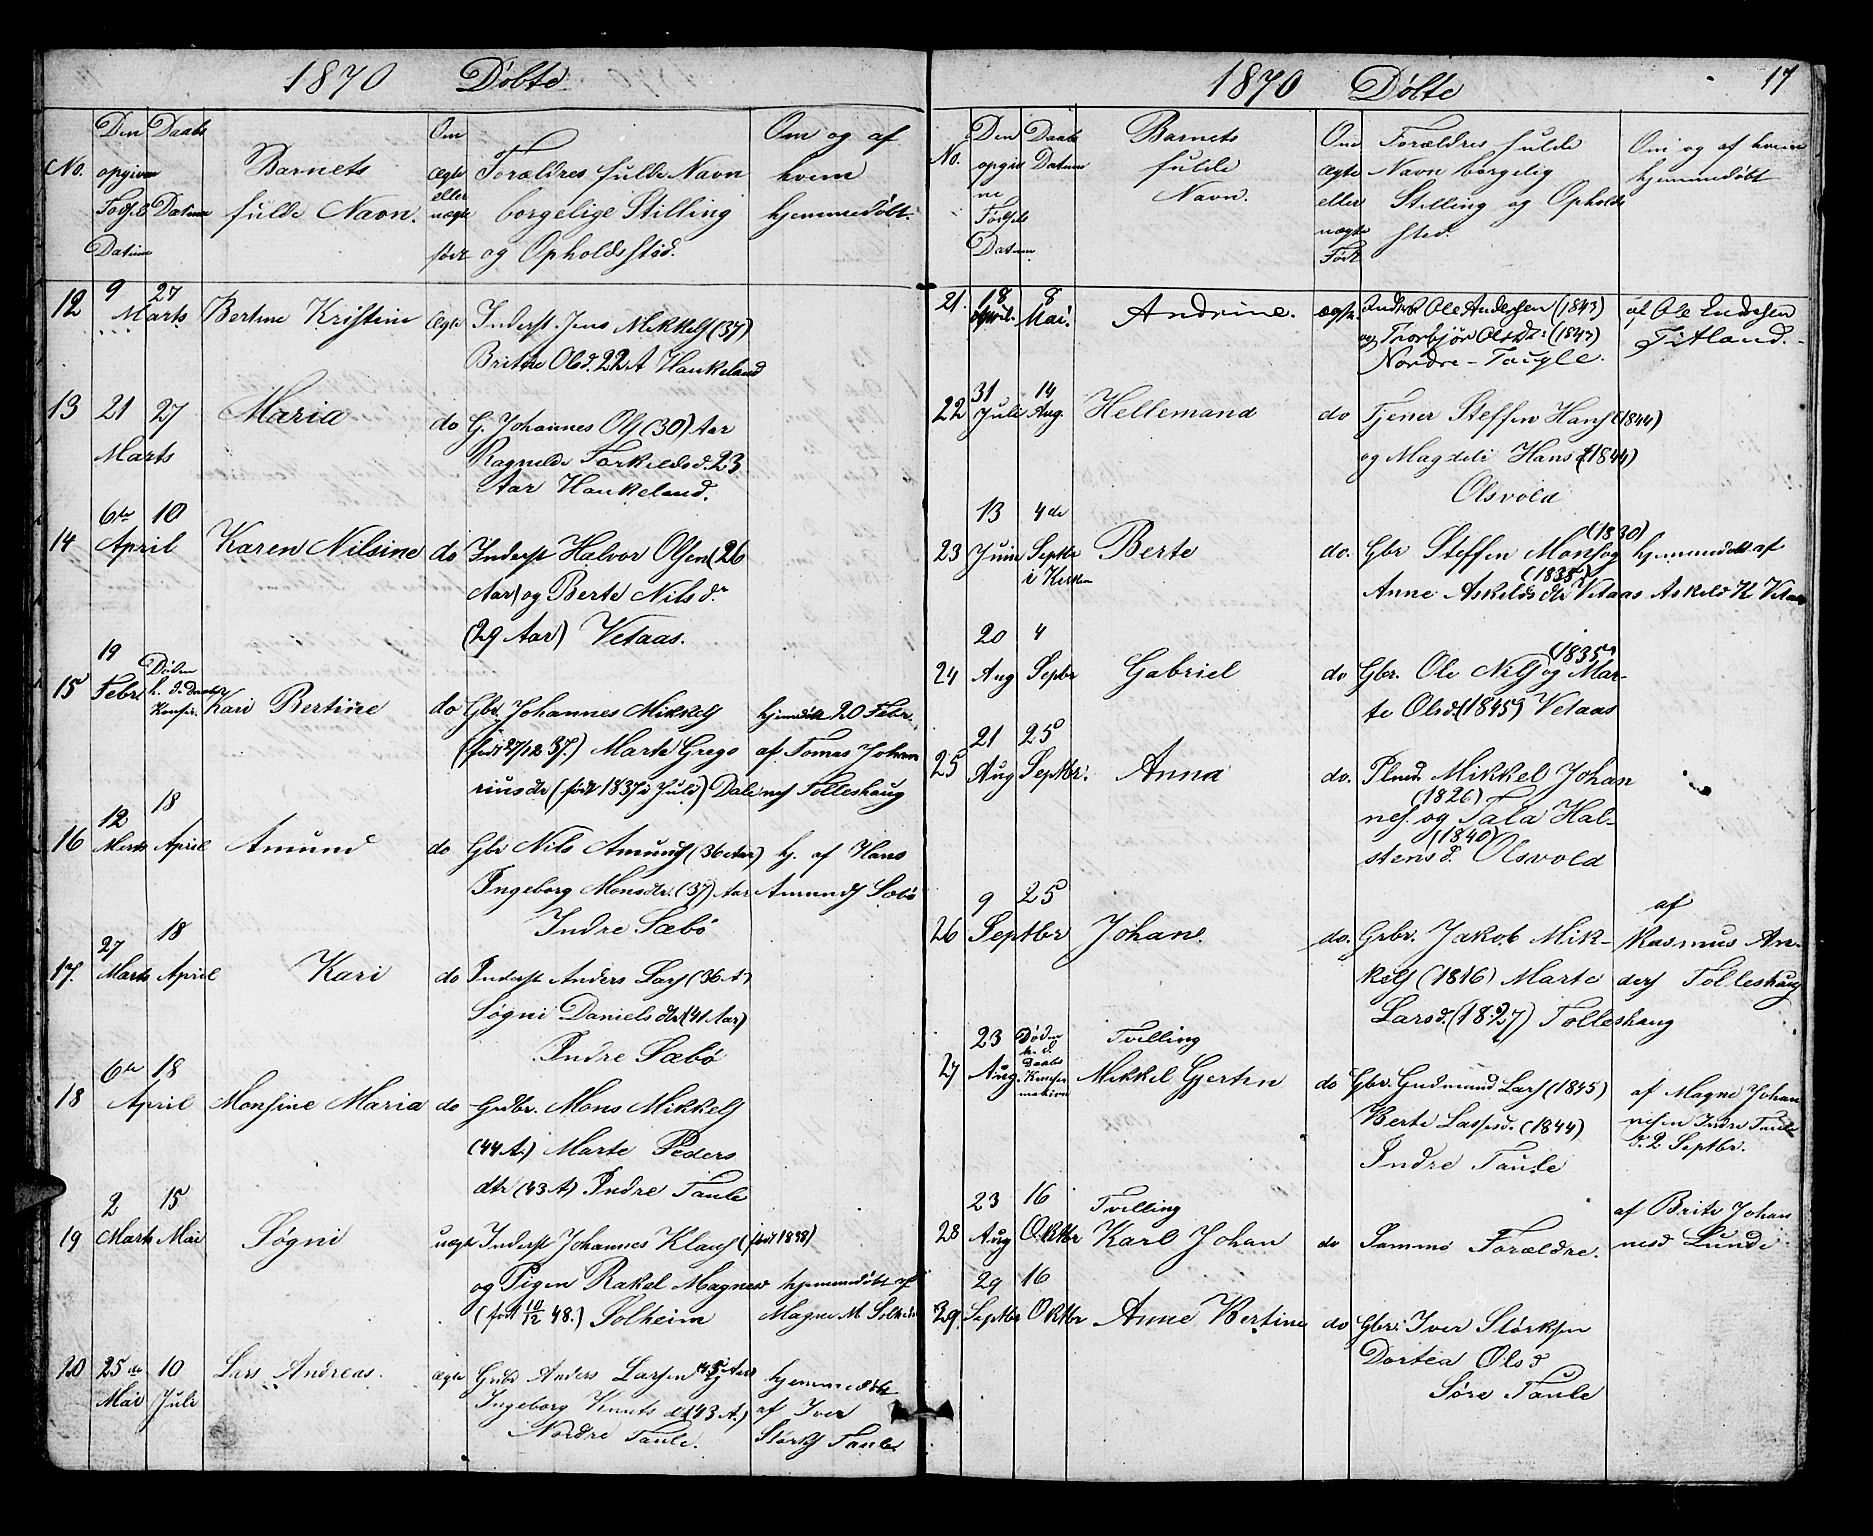 1870 Døbte
No.
Den opgivne Fødsels Datum
Daabs Datum
Barnets fulde Navn.
Om ægte eller uægte født
Forældres fulde Navn borgelige Stilling og Opholdssted.
Om og af hvem hjemmedøbt.
12 9 Marts 27 Bertine Kristine ægte Inderst. Jens Mikkels (37)
Brithe Olsd. 22 A Haukeland
13 21 27 Marts Maria do G. Johannes Ols (30) Aar
Ragnilde Torkildsd. 23
Aar Haukeland.
14 6te 10 April Karen Nilsine do Inderst Halvor Olsen (26
Aar) og Berte Nilsd.
(29 Aar) Vetaas.
15 19 Febr Døden h. d. Daabs Konfir. Kari Bertine do Gbr. Johannes Mikkels hjemdøbt 20 Febr.
(født 27/12 37.) Marte Grego af Tomas Johan
riusdr (født 1837 i Juli) Dale nes Tolleshaug
16 12 Marts 18 April Amund do Gbr Nils Amunds (36 Aar) hj. af Hans
Ingeborg Monsdr. (37) Aar Amunds Sæbø
Indre Sæbø
17. 27 Marts 18 April Kari do Inderst Anders Lars (36 A)
Søgni Danielsdtr (41 Aar)
Indre Sæbø
18 6te 18 April Monsine Maria do Grdbr. Mons Mikkels
(44 A.) Marte Peders
dtr (43 A) Indre Taule
19 2 Marts 15 Mai Søgni uægte Inderst Johannes Klaus (født 1838)
og Pigen Rakel Magnesd hjemmedøbt af
(født 10/12 48.) Solheim Magne M. Solheim
20 25de Mai 10 Juli Lars Andreas. ægte Grdbr Anders Larsen 45 Aar og hjemmedøbt
Ingeborg Knutsd (43 A.) af Iver
Nordre Taule. Størks Taule.
1870 Døbte 17
No.
Den opgivne Fødsels Datum
Daabs Datum
Barnets fulde Navn.
Om ægte eller uægte Født
Forældres fulde Navn borgelig Stilling og Opholdssted.
Om og af hvem hjemmedøbt
21. 18 April. 8 Mai. Andrine. ægte. Inderst Ole Andersen (1843) af Ole Endresen
og Thorbjør Olsdt: (1843) Titland.
Nordre-Taugle.
22 31 Juli 14 Aug. Hellemand do Tjener Steffen Hans (1844)
og Magdeli Hansd (1844)
Olsvold
23 13 Juin 4de Septbr i Kirken Berte do. Gbr Steffen Mons (1830) og hjemmedøbt af
Anne Askeldsdtr (1838) Vetaas Askeld K Vetaas
24 20 Aug 4 Sepbr Gabriel do Gbr. Ole Nils (1835) og Mar-
te Olsd. (1845) Vetaas
25 21 Aug 25 Septbr. Anna do. Plmd. Mikkel Johan
nes. (1826) og Tala Hal-
stensd. (1840) Olsvold
26 9 25 Septbr Johan. do. Grbr. Jakob Mik- af Rasmus An-
kels (1816) Marte ders Tolleshaug
Larsd. (1827) Tolleshaug
27 23 Aug. Døden h. d. Daabs Konfirmation Tvilling
Mikkel Gjertin do Gbr. Gudmund Lars (1845) af Magne Johan
Berte Lassesd. (1844) nesen Indre Taule
Indre Taule d. 2 Septbr.
28 23 Aug 16 Oktbr Tvilling
Karl Johan do Samme Forældre. af Brite Johan
nesd Lunde
29. 29 Septbr 16 Oktbr Anne Bertine do Gbr: Iver Størksen
Dortea Olsd
Søre Taule